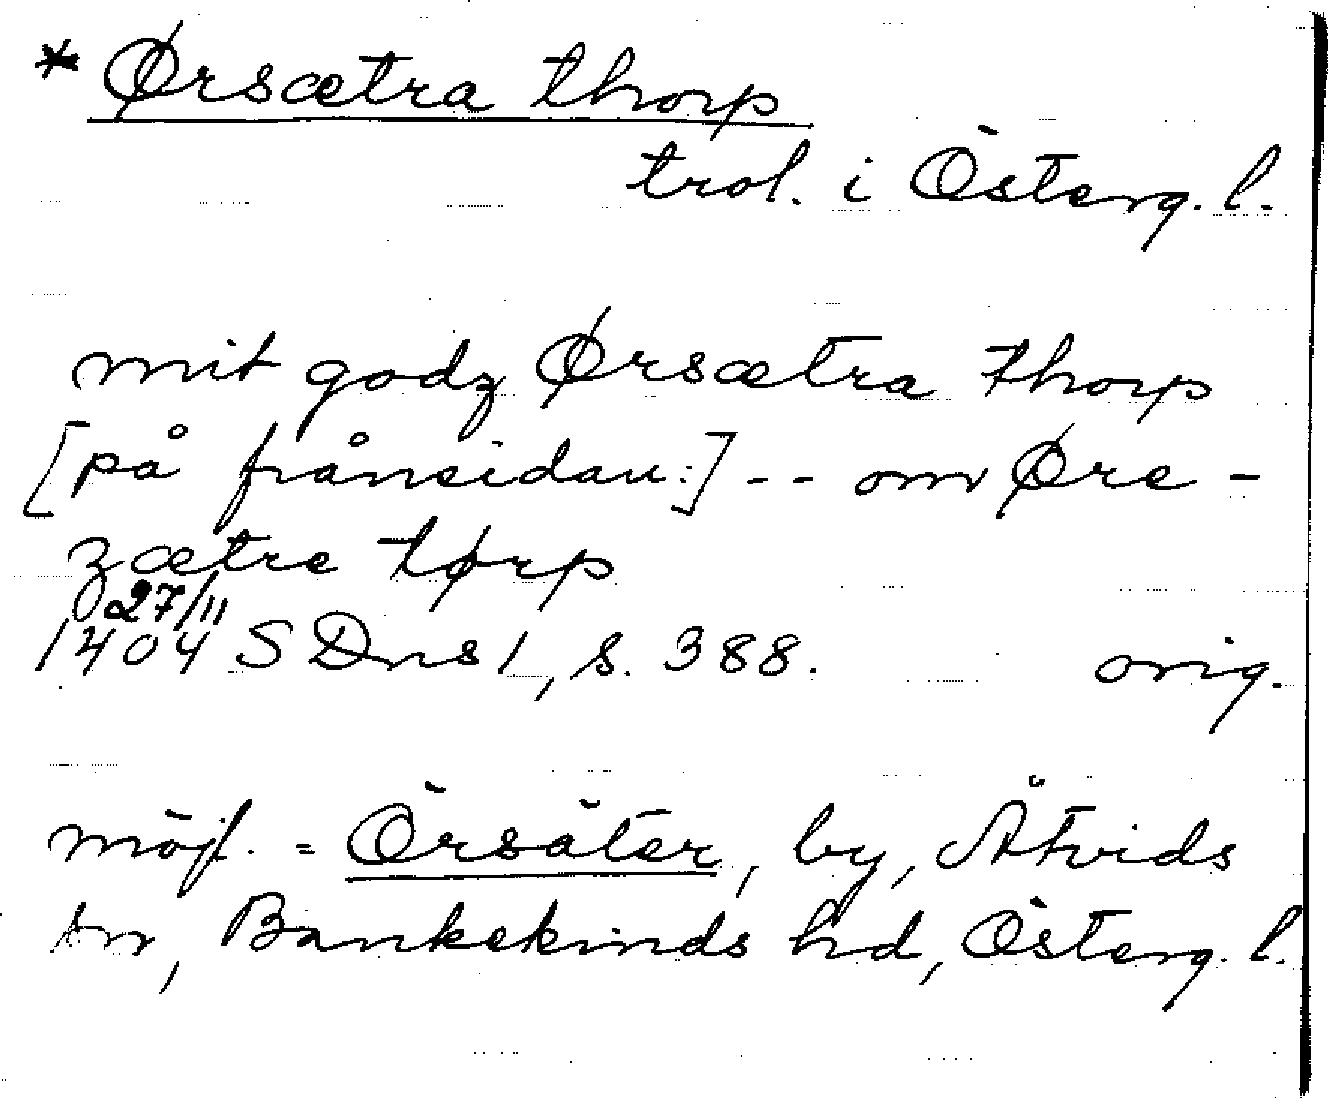 * Ørsætra thorp
trol. i Österg. l.
mit godz Ørsætra thorp
[på frånsidan:] -- om Øre-
zætre tørp
27/11
1404 SDns 1, s. 388. orig.
möjl. = Örsäter, by, Åtvids
sn, Bankekinds hd, Österg. l.